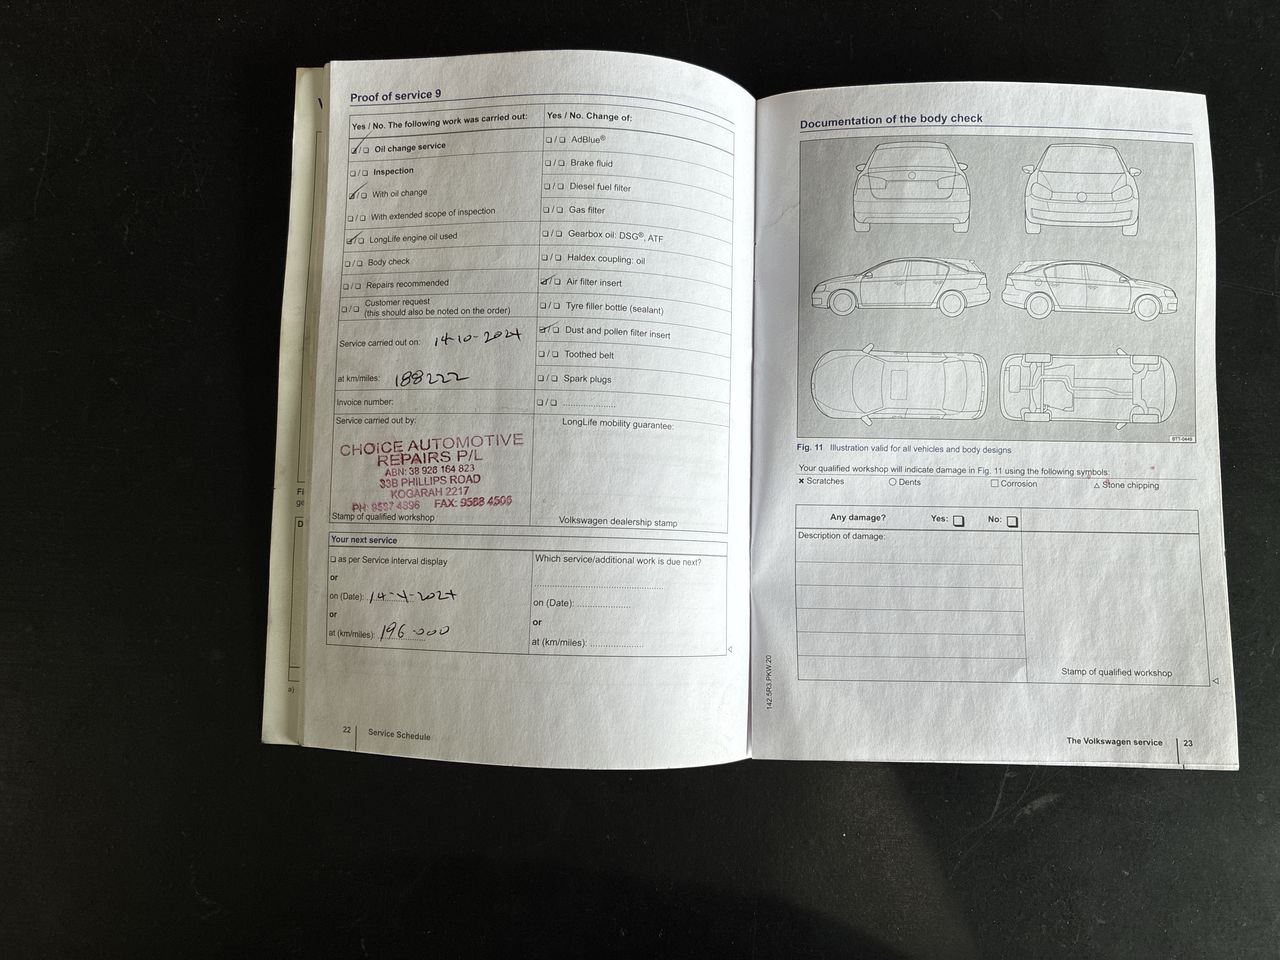 Proof of service 9
Yes / No. The following work was carried out:
Yes / No. Change of:
Oil change service
Inspection
With oil change
With extended scope of inspection
LongLife engine oil used
Body check
Repairs recommended
Customer request
(this should also be noted on the order)
AdBlue®
Brake fluid
Diesel fuel filter
Gas filter
Gearbox oil: DSG®, ATF
Haldex coupling: oil
Air filter insert
Tyre filler bottle (sealant)
Dust and pollen filter insert
Toothed belt
Spark plugs
Service carried out on: 14-10-2024
at km/miles: 188222
Invoice number:
Service carried out by:
LongLife mobility guarantee:
CHOICE AUTOMOTIVE
REPAIRS P/L
ABN: 38 928 164 823
33B PHILLIPS ROAD
KOGARAH 2217
PH: 9587 4396 FAX: 9588 4506
Stamp of qualified workshop
Volkswagen dealership stamp
Your next service
as per Service interval display
or
on (Date): 14-4-2024
or
at (km/miles): 196000
Which service/additional work is due next?
on (Date):
or
at (km/miles):
22 Service Schedule
Documentation of the body check
BTT-0449
Fig. 11 Illustration valid for all vehicles and body designs
Your qualified workshop will indicate damage in Fig. 11 using the following symbols:
× Scratches
○ Dents
□ Corrosion
△ Stone chipping
Any damage? Yes: No:
Description of damage:
Stamp of qualified workshop
142.5R3.PKW.20
The Volkswagen service 23